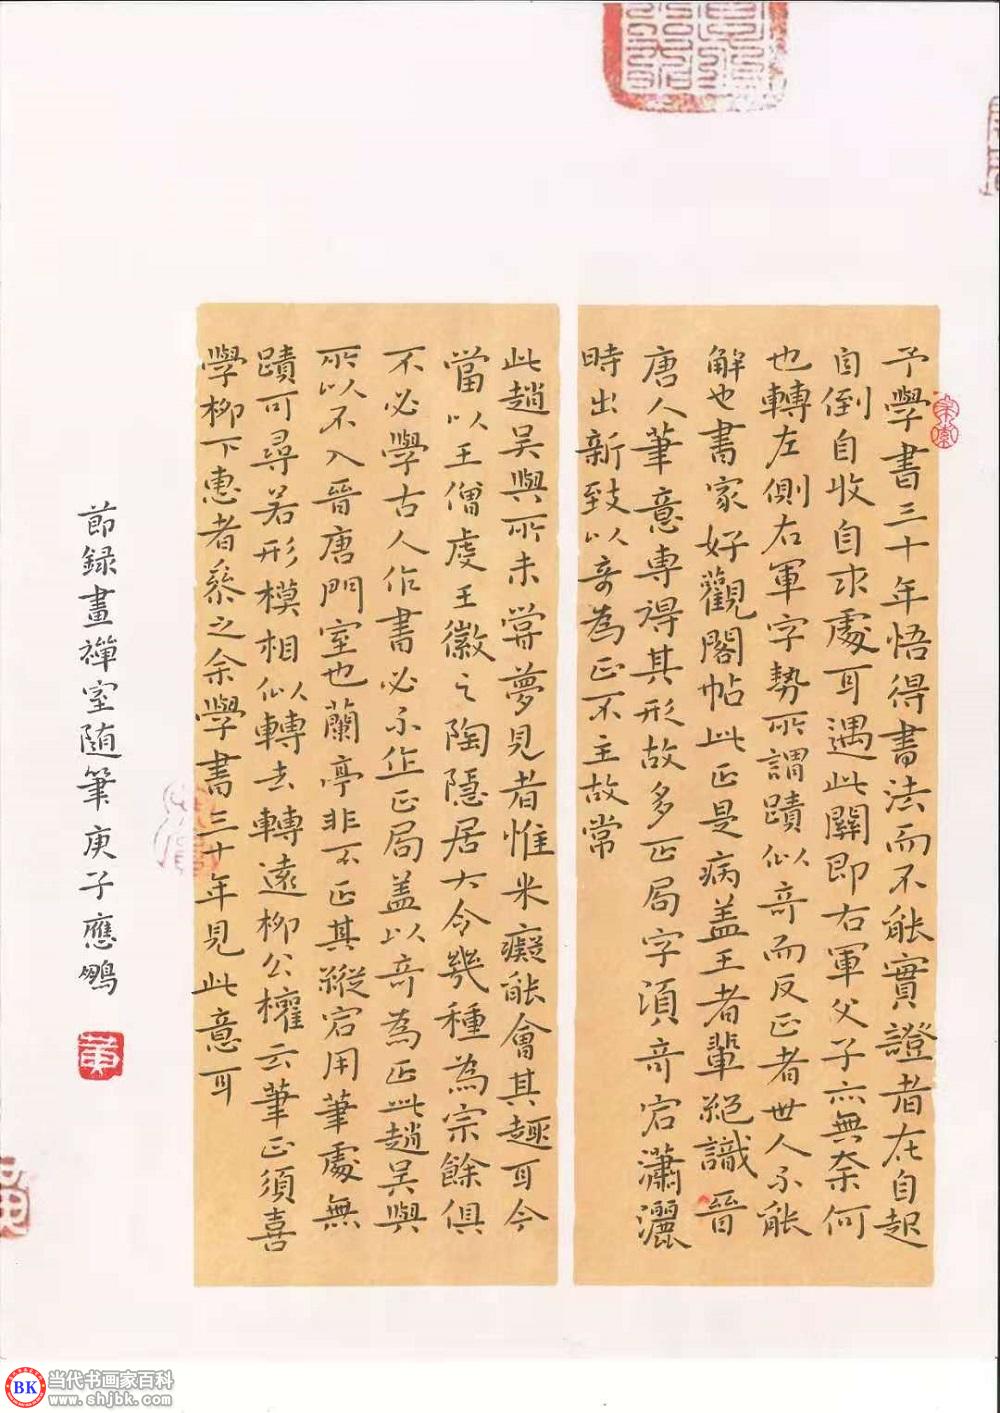 予學書三十年悟得書法而不能實證者在自起
自倒自收自束處耳遇此關即右軍父子亦無奈何
也轉左側右軍字勢所謂蹟似奇而反正者世人不能
解也書家好觀閣帖此正是病盖王著輩絕識晉
唐人筆意專得其形故多正局字須奇宕瀟灑
時出新致以奇為正不主故常
此趙吴興所未嘗夢見者惟米癡能會其趣耳今
當以王僧虔王徽之陶隱居大令幾種為宗餘俱
不必學古人作書必不作正局盖以奇為正此趙吴興
所以不入晉唐門室也蘭亭非不正其縱宕用筆處無
蹟可尋若形模相似轉去轉遠柳公權云筆正須喜
學柳下惠者參之余學書三十年見此意耳
節録畫禪室随筆庚子應鵬
BK
当代书画家百科
www.shjbk.com